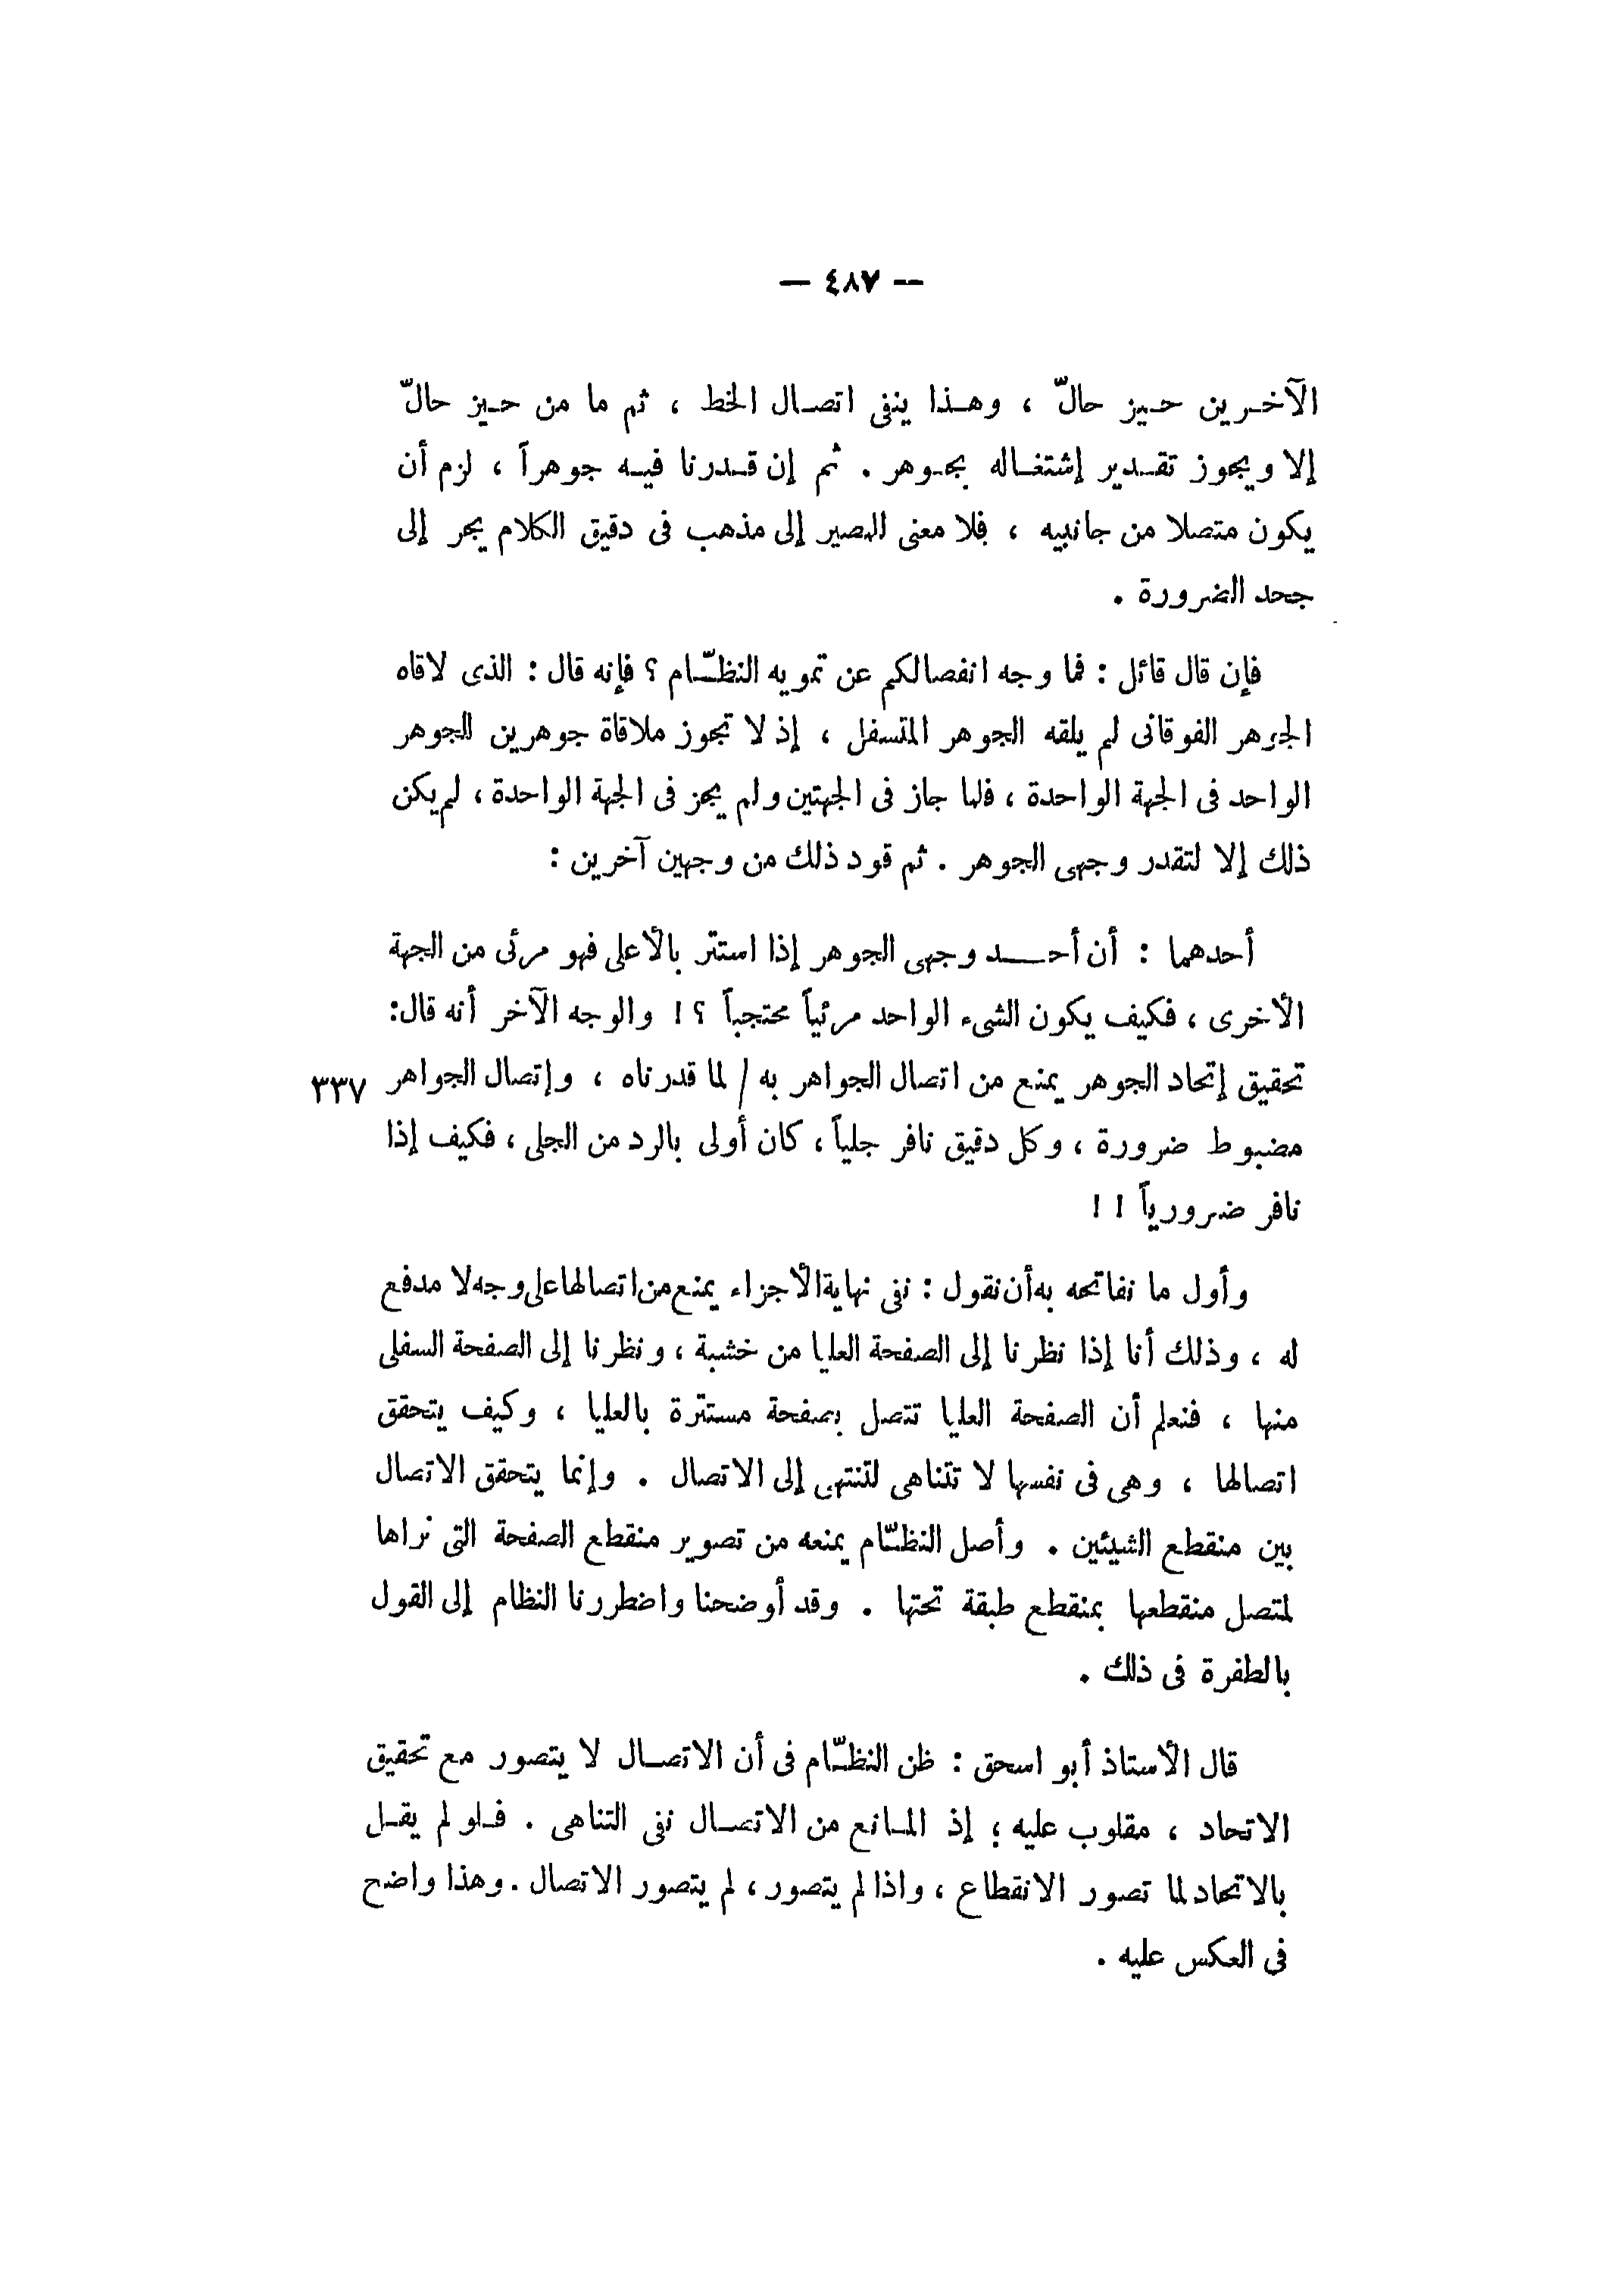 — ٤٨٧ —
الآخرين حيز حالّ ، وهذا ينفى اتصال الخط ، ثم ما من حيز حالّ
إلا ويجوز تقدير إشتغاله بجوهر . ثم إن قدرنا فيه جوهراً ، لزم أن
يكون متصلا من جانبيه ، فلا معنى للمصير إلى مذهب فى دقيق الكلام يجر إلى
جحد الضرورة .
فإن قال قائل : فما وجه انفصالكم عن تمويه النظّام ؟ فإنه قال : الذى لاقاه
الجوهر الفوقانى لم يلقه الجوهر المتسفل ، إذ لا تجوز ملاقاة جوهرين للجوهر
الواحد فى الجهة الواحدة ، فلما جاز فى الجهتين ولم يجز فى الجهة الواحدة ، لم يكن
ذلك إلا لتقدر وجهى الجوهر . ثم قود ذلك من وجهين آخرين :
أحدهما : أن أحد وجهى الجوهر إذا استتر بالأعلى فهو مرئى من الجهة
الأخرى ، فكيف يكون الشىء الواحد مرئياً محتجباً ؟! والوجه الآخر أنه قال:
تحقيق إتحاد الجوهر يمنع من اتصال الجواهر به / لما قدرناه ، وإتصال الجواهر ٣٣٧
مضبوط ضرورة ، وكل دقيق نافر جلياً ، كان أولى بالرد من الجلى ، فكيف إذا
نافر ضرورياً ! !
وأول ما نفاتحه به أن نقول : نفى نهاية الأجزاء يمنع من اتصالها على وجه لا مدفع
له ، وذلك أنا إذا نظرنا إلى الصفحة العليا من خشبة ، ونظرنا إلى الصفحة السفلى
منها ، فنعلم أن الصفحة العليا تتصل بصفحة مستترة بالعليا ، وكيف يتحقق
اتصالها ، وهى فى نفسها لا تتناهى لتنتهى إلى الاتصال . وإنما يتحقق الاتصال
بين منقطع الشيئين . وأصل النظّام يمنعه من تصوير منقطع الصفحة التى نراها
لمتصل منقطعها بمنقطع طبقة تحتها . وقد أوضحنا واضطررنا النظام إلى القول
بالطفرة فى ذلك .
قال الأستاذ أبو اسحق : ظن النظّام فى أن الاتصال لا يتصور مع تحقيق
الاتحاد ، مقلوب عليه ؛ إذ المانع من الاتصال نفى التناهى . فلو لم يقل
بالاتحاد لما تصور الانقطاع ، واذا لم يتصور ، لم يتصور الاتصال . وهذا واضح
فى العكس عليه .